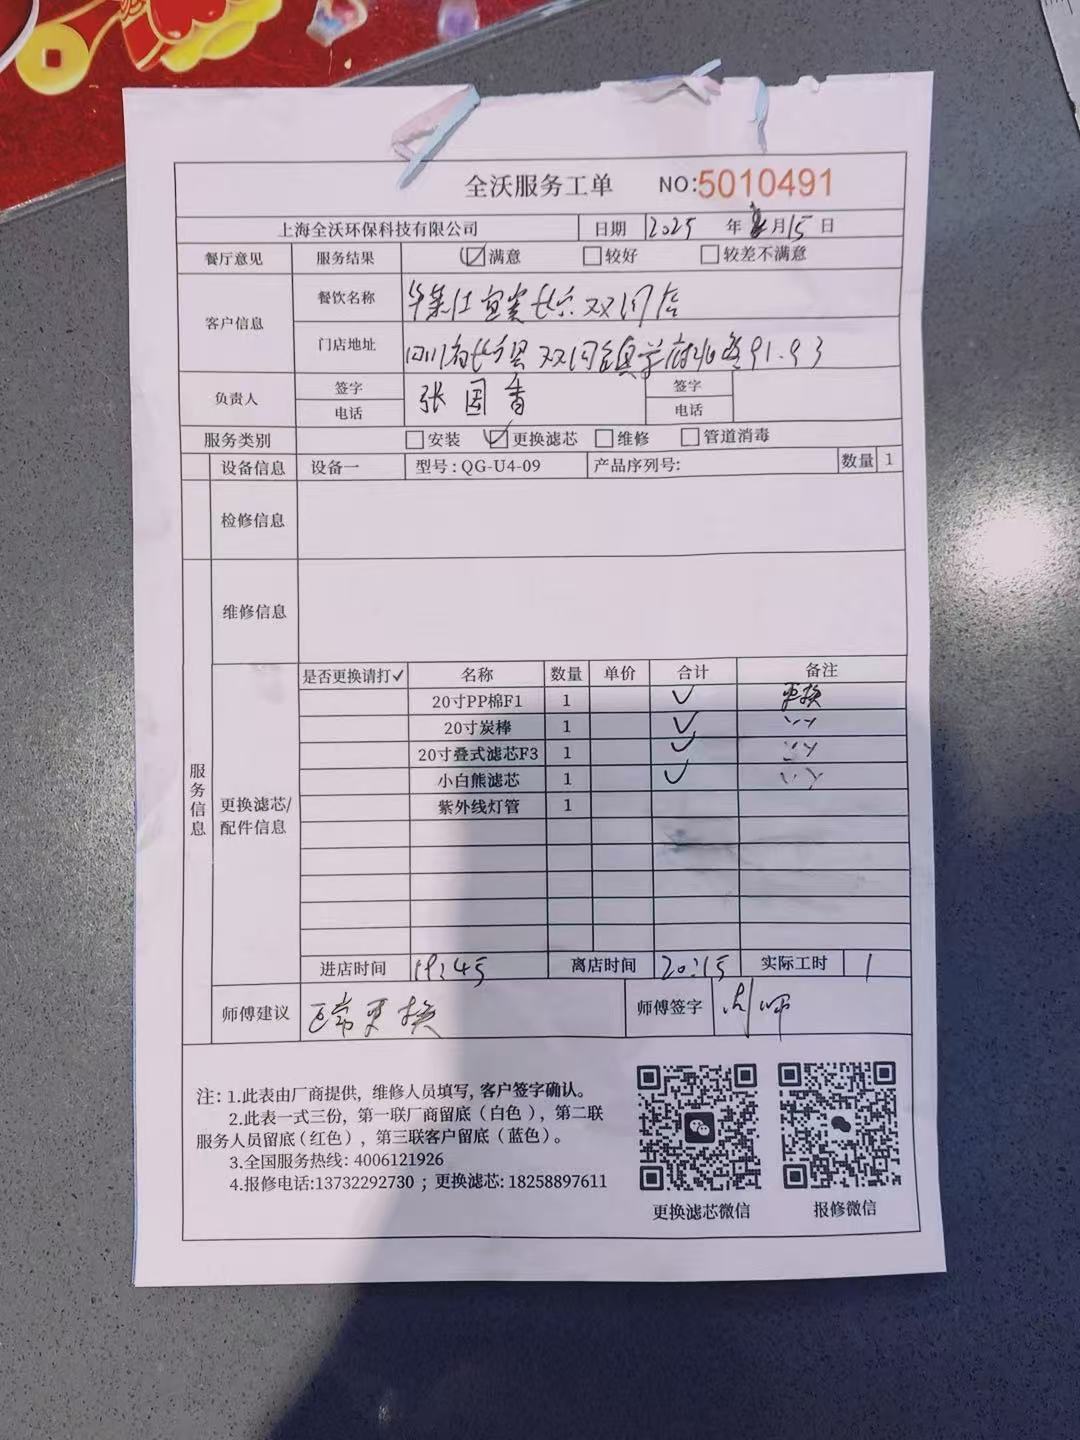 全沃服务工单 NO:5010491
上海全沃环保科技有限公司 日期 2025 年 月 15 日
餐厅意见 服务结果 ☑满意 □较好 □较差不满意
客户信息 餐饮名称 华莱士宜宾长宁双河店
门店地址 四川省长宁县双河镇学府路 91.93
负责人 签字 电话 张国香 签字 电话
服务类别 □安装 ☑更换滤芯 □维修 □管道消毒
设备信息 设备一 型号:QG-U4-09 产品序列号: 数量 1
检修信息
维修信息
服务信息
更换滤芯/配件信息
是否更换请打✓ 名称 数量 单价 合计 备注
20寸PP棉F1 1 ✓ 更换
20寸炭棒 1 ✓ 〃
20寸叠式滤芯F3 1 ✓ 〃
小白熊滤芯 1 ✓ 〃
紫外线灯管 1
进店时间 19:45 离店时间 20:15 实际工时 1
师傅建议 正常更换 师傅签字
注：1.此表由厂商提供，维修人员填写，客户签字确认。
2.此表一式三份，第一联厂商留底（白色），第二联
服务人员留底（红色），第三联客户留底（蓝色）。
3.全国服务热线：4006121926
4.报修电话:13732292730 ；更换滤芯: 18258897611
更换滤芯微信 报修微信